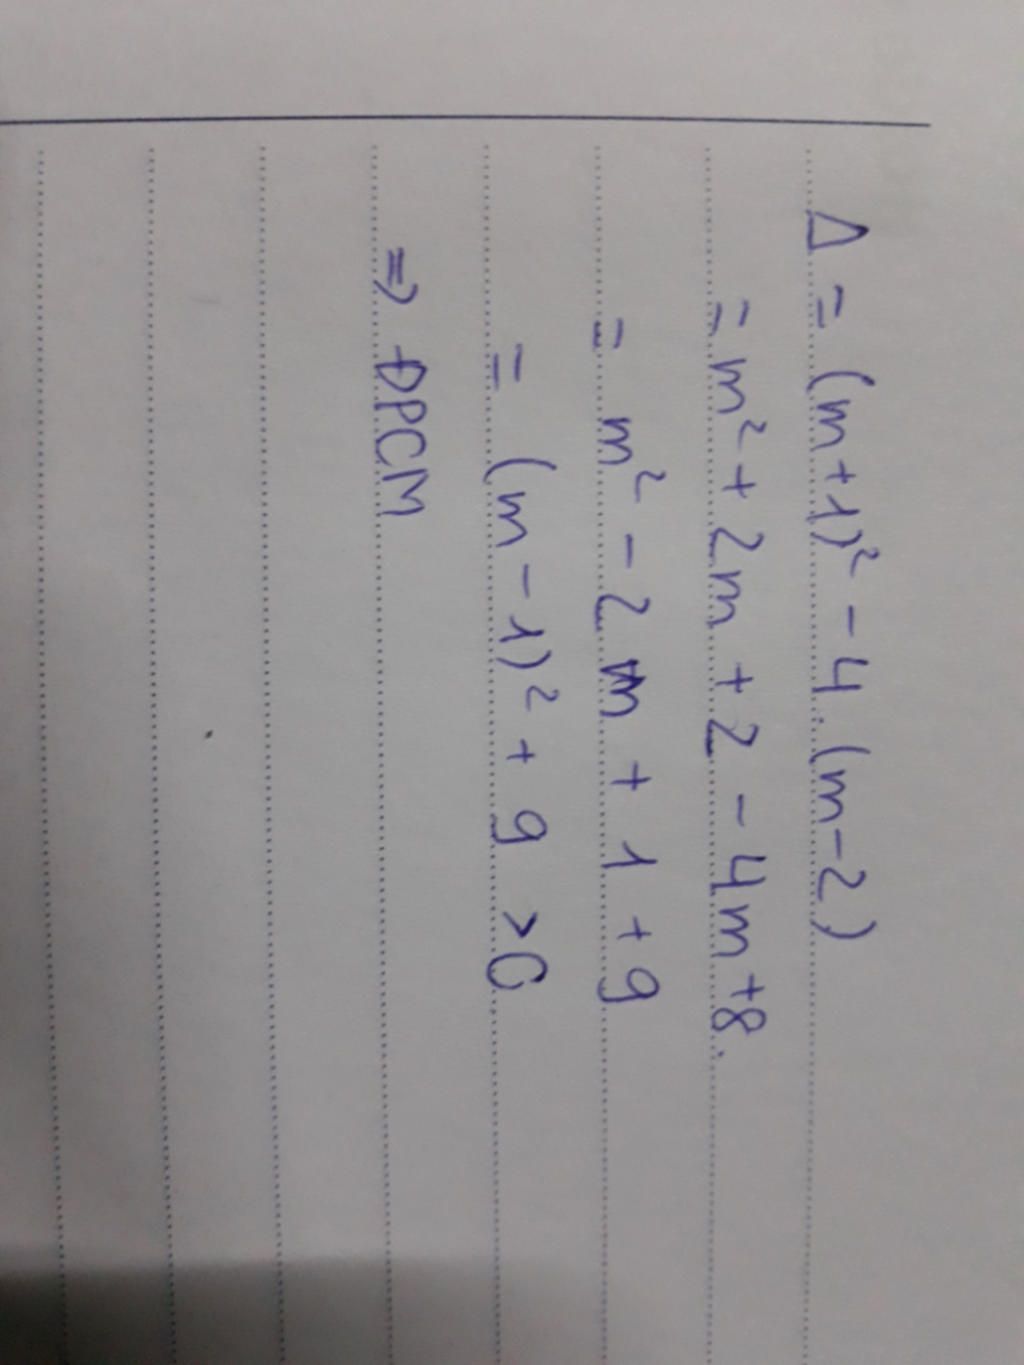 Δ = (m+1)² - 4.(m-2)
= m² + 2m + 2 - 4m +8.
= m² - 2m + 1 + 9
= (m - 1)² + 9 >0
=> ĐPCM